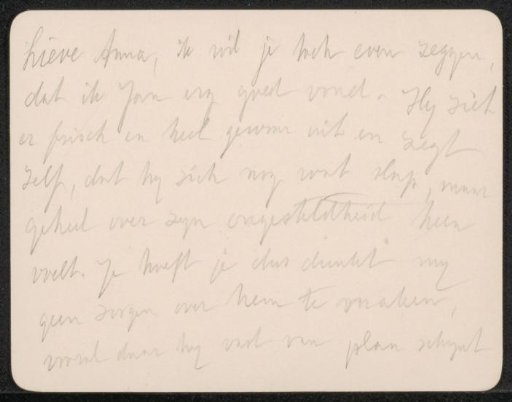 Lieve Anna, ik wil je toch even zeggen,
dat ik Jan erg goed vond. Hij ziet
er frisch en heel gewoon uit en zegt
zelf, dat hij zich nog wat slap, maar
geheel over zijn ongesteldheid heen
voelt. Je hoeft je dus dunkt mij
geen zorgen over hem te maken,
vooral daar hij vast van plan schijnt